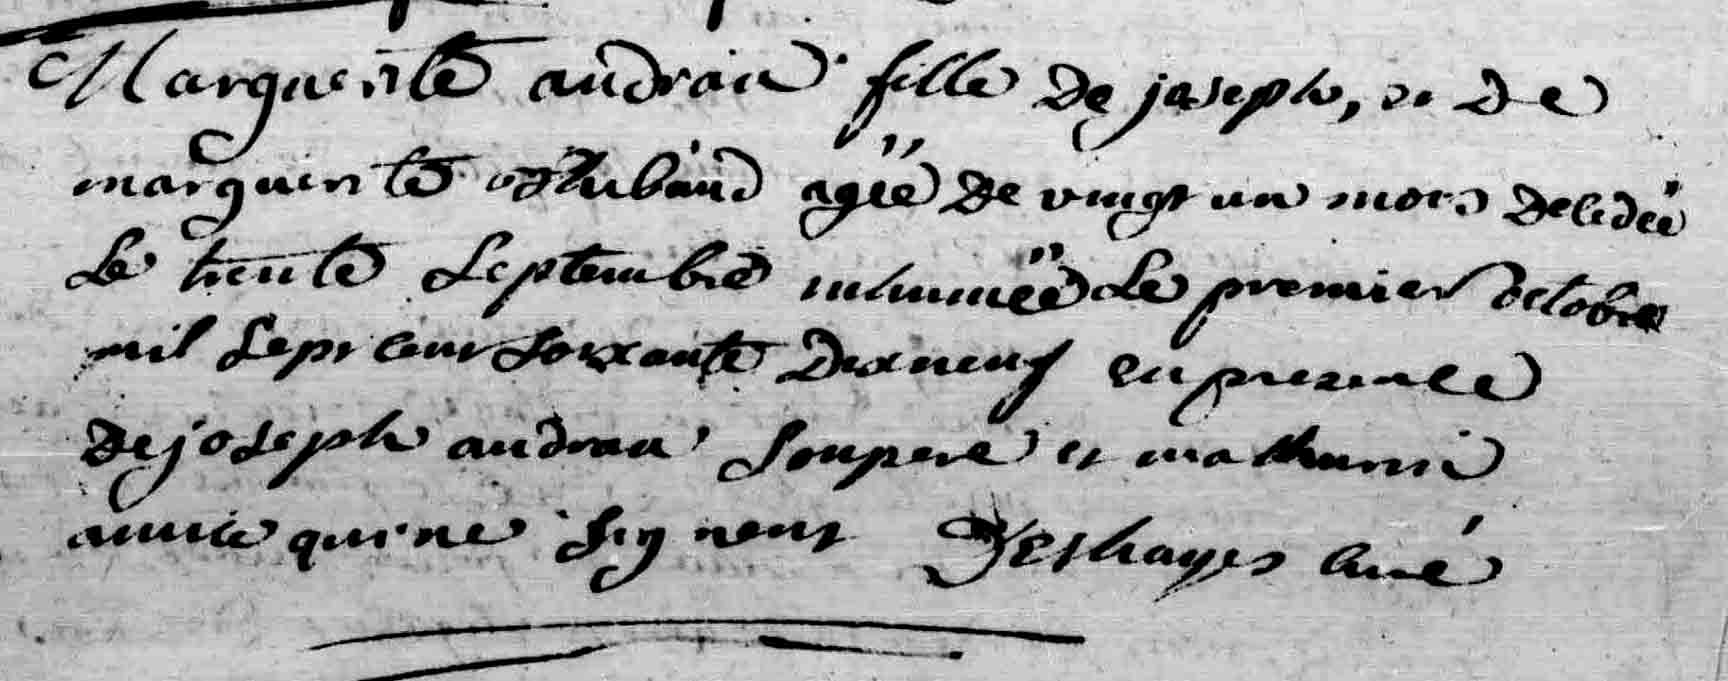 Marguerite audrain fille De joseph, et De
marguerite agée De vingt un mois Decedée
Le trente Septembre inhumée Le premier octobre
mil Sept cent Soixante Dixneuf en presence
De joseph audrain Son pere et mathurin
qui ne Signent Deshayes curé